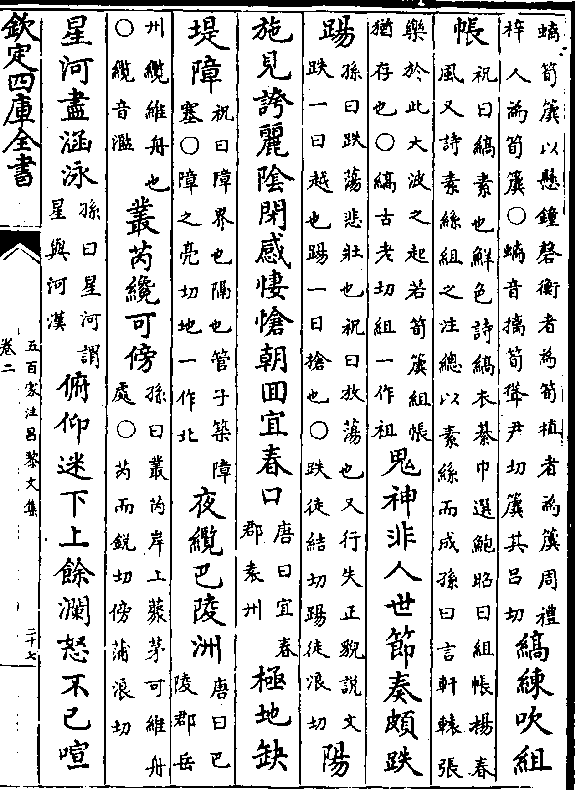 螭筍簴以懸鐘磬衡者為筍植者為簴周禮
梓人為筍簴○螭音摛筍聳尹切簴其吕切
縞練吹組
帳
祝曰縞素也鮮色詩縞衣綦巾選鮑昭曰組帳揚春
風又詩素絲組之注總以素絲而成孫曰言軒轅張
樂於此大波之起若筍簴組帳
猶存也○縞古老切組一作祖
鬼神非人世節奏頗跌
踼
孫曰跌蕩悲壯也祝曰放蕩也又行失正貌說文
跌一曰越也踼一曰搶也○跌徒結切踼徒浪切
陽
施見誇麗陰閉感悽愴朝回宜春口
唐曰宜春
郡袁州
極地缺
堤障
祝曰障界也隔也管子築障
塞○障之亮切地一作北
夜纜巴陵洲
唐曰巴
陵郡岳
州纜維舟也
○纜音濫
叢芮纜可傍
孫曰叢芮岸上藂茅可維舟
處○芮而銳切傍蒲浪切
星河盡涵泳
孫曰星河謂
星與河漢
俯仰迷下上餘瀾怒不已喧
欽定四庫全書
卷二
五百家注昌黎文集
二十七